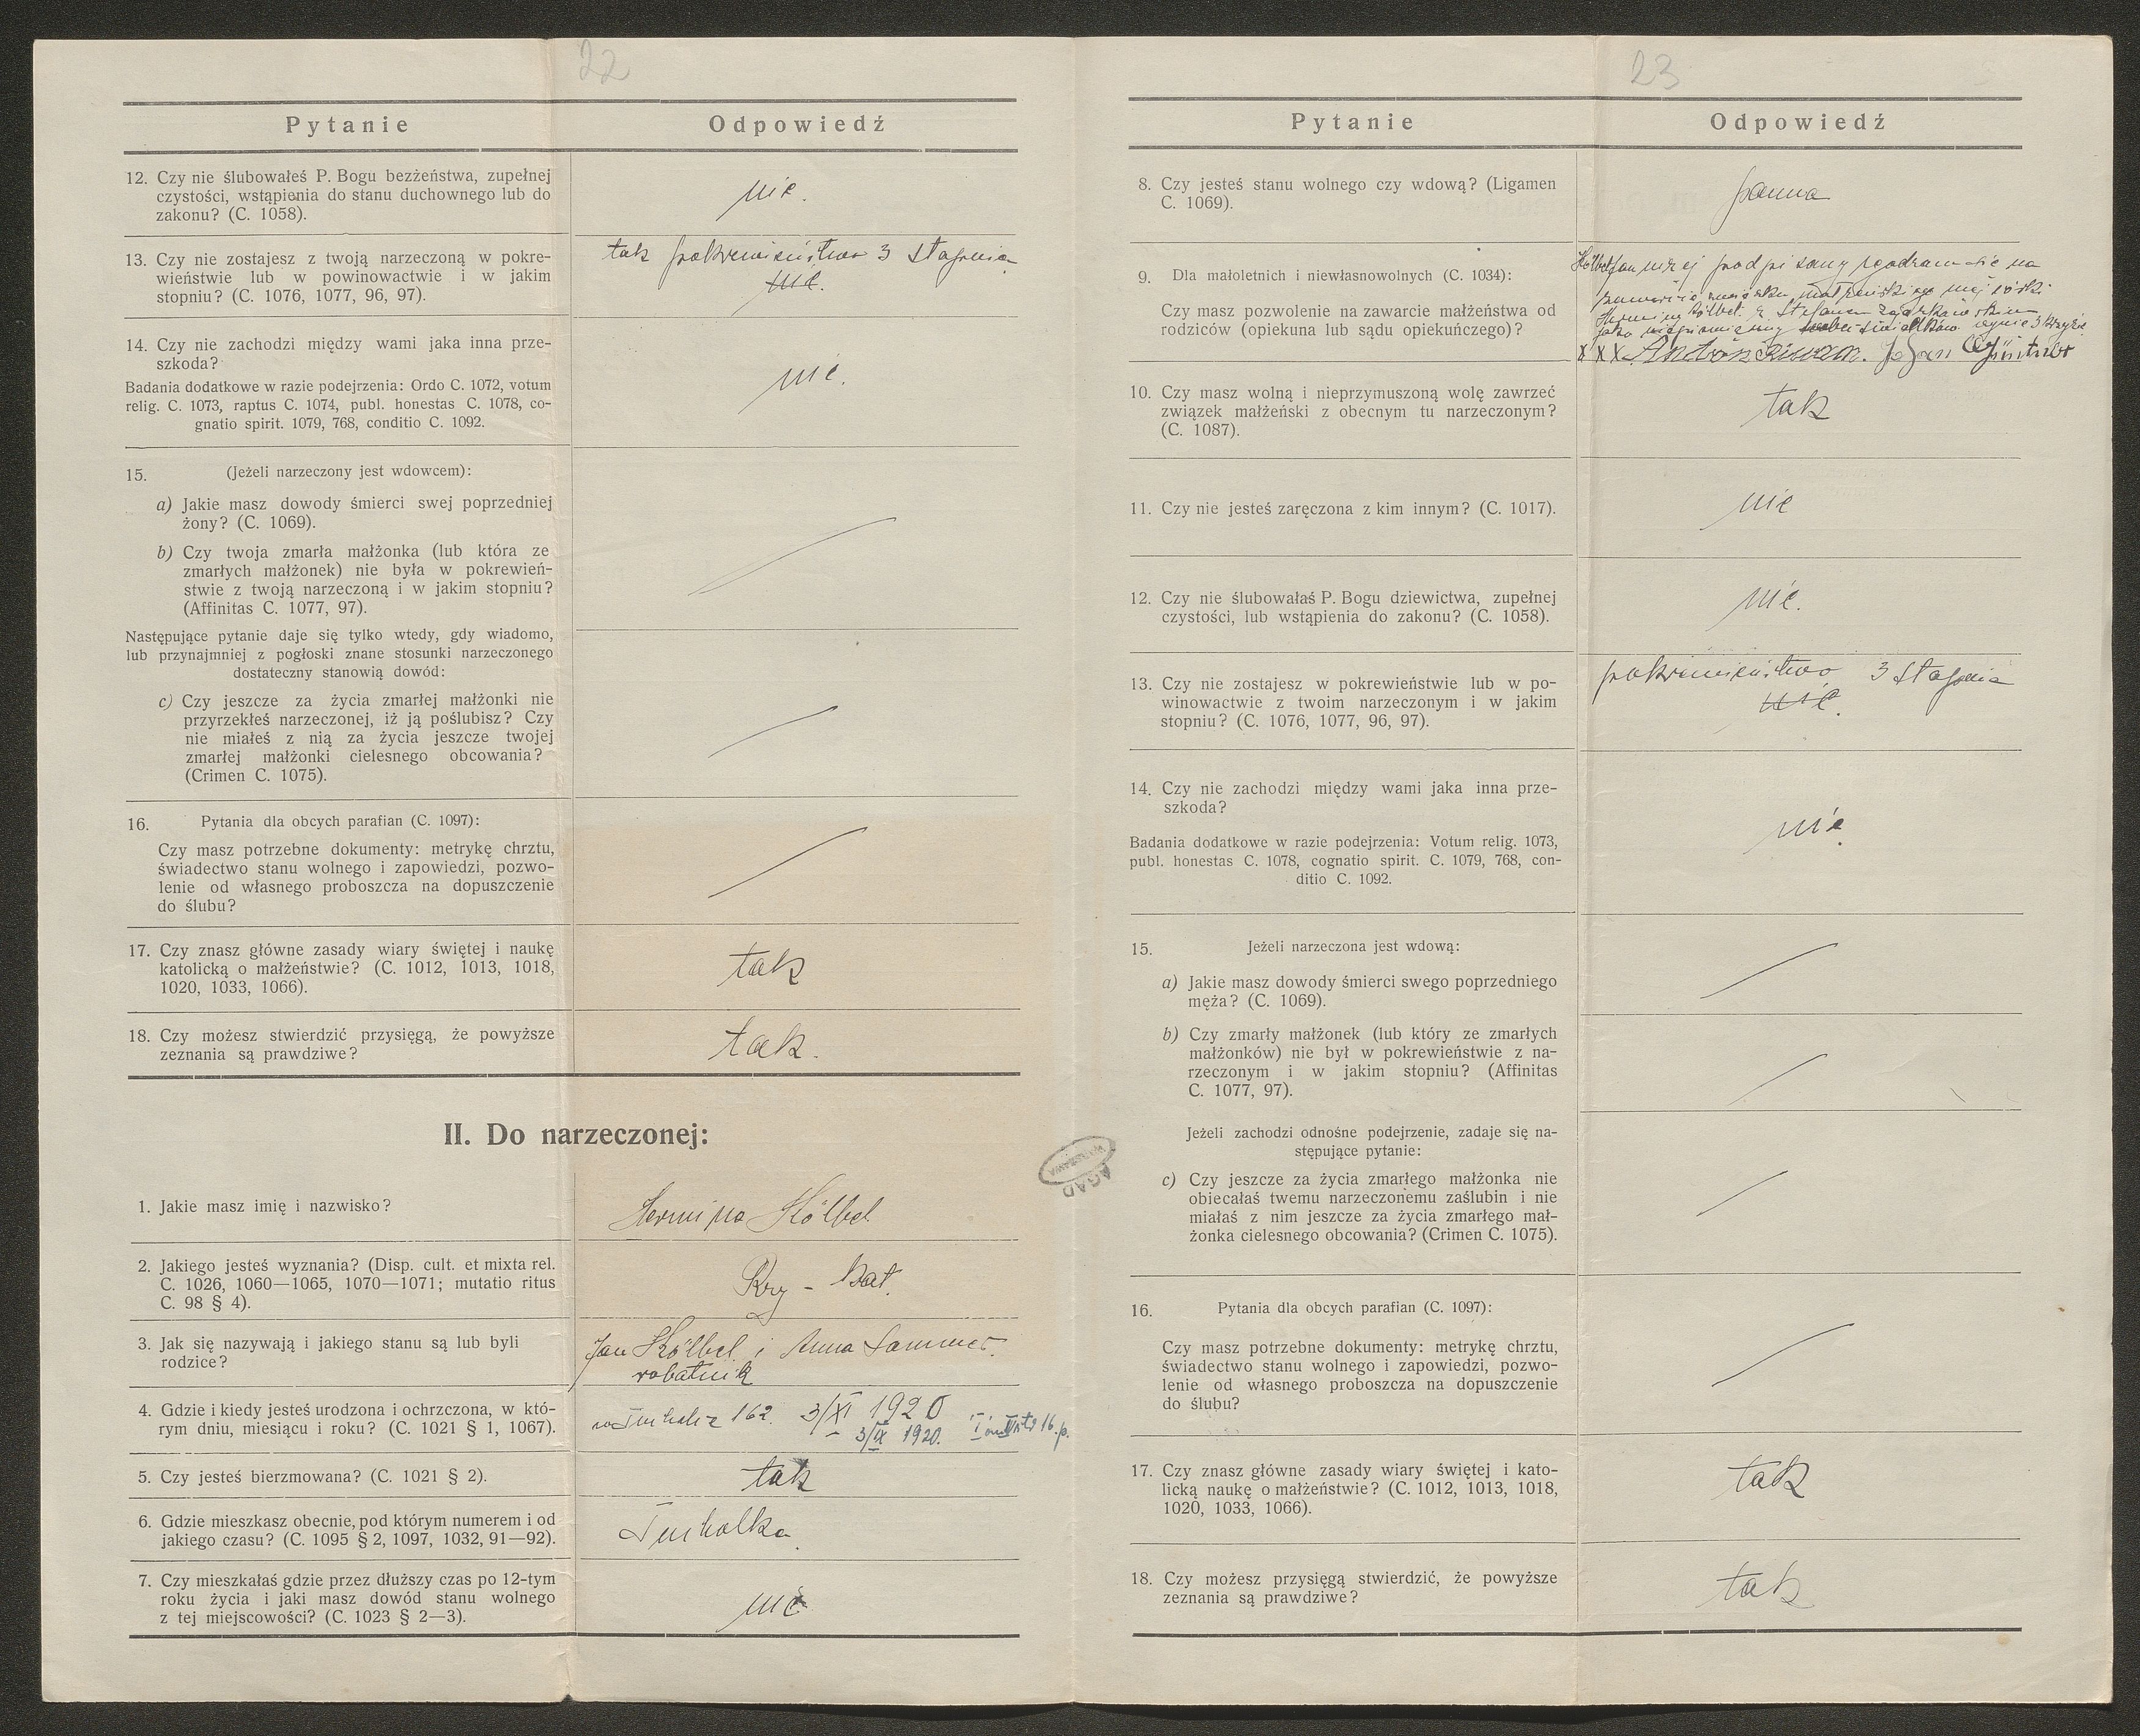 22
Pytanie
Odpowiedź
12. Czy nie ślubowałeś P. Bogu bezżeństwa, zupełnej
czystości, wstąpienia do stanu duchownego lub do
zakonu? (C. 1058).
nie.
13. Czy nie zostajesz z twoją narzeczoną w pokre-
wieństwie lub w powinowactwie i w jakim
stopniu? (C. 1076, 1077, 96, 97).
tak pokrewieństwo 3 stopnia
nie.
14. Czy nie zachodzi między wami jaka inna prze-
szkoda?
Badania dodatkowe w razie podejrzenia: Ordo C. 1072, votum
relig. C. 1073, raptus C. 1074, publ. honestas C. 1078, co-
gnatio spirit. 1079, 768, conditio C. 1092.
nie.
15. (Jeżeli narzeczony jest wdowcem):
a) Jakie masz dowody śmierci swej poprzedniej
żony? (C. 1069).
b) Czy twoja zmarła małżonka (lub która ze
zmarłych małżonek) nie była w pokrewień-
stwie z twoją narzeczoną i w jakim stopniu?
(Affinitas C. 1077, 97).
Następujące pytanie daje się tylko wtedy, gdy wiadomo,
lub przynajmniej z pogłoski znane stosunki narzeczonego
dostateczny stanowią dowód:
c) Czy jeszcze za życia zmarłej małżonki nie
przyrzekłeś narzeczonej, iż ją poślubisz? Czy
nie miałeś z nią za życia jeszcze twojej
zmarłej małżonki cielesnego obcowania?
(Crimen C. 1075).
16. Pytania dla obcych parafian (C. 1097):
Czy masz potrzebne dokumenty: metrykę chrztu,
świadectwo stanu wolnego i zapowiedzi, pozwo-
lenie od własnego proboszcza na dopuszczenie
do ślubu?
17. Czy znasz główne zasady wiary świętej i naukę
katolicką o małżeństwie? (C. 1012, 1013, 1018,
1020, 1033, 1066).
tak
18. Czy możesz stwierdzić przysięgą, że powyższe
zeznania są prawdziwe?
tak.
II. Do narzeczonej:
1. Jakie masz imię i nazwisko?
Hermina Kölbel
2. Jakiego jesteś wyznania? (Disp. cult. et mixta rel.
C. 1026, 1060—1065, 1070—1071; mutatio ritus
C. 98 § 4).
Rzy - kat.
3. Jak się nazywają i jakiego stanu są lub byli
rodzice?
Jan Kölbel i Anna
robotnik
4. Gdzie i kiedy jesteś urodzona i ochrzczona, w któ-
rym dniu, miesiącu i roku? (C. 1021 § 1, 1067).
162. 3/XI 1920
3/IX 1920. 16. p.
5. Czy jesteś bierzmowana? (C. 1021 § 2).
tak
6. Gdzie mieszkasz obecnie, pod którym numerem i od
jakiego czasu? (C. 1095 § 2, 1097, 1032, 91—92).
Tucholka
7. Czy mieszkałaś gdzie przez dłuższy czas po 12-tym
roku życia i jaki masz dowód stanu wolnego
z tej miejscowości? (C. 1023 § 2—3).
nie
AGAD
WARSZAWA
23
Pytanie
Odpowiedź
8. Czy jesteś stanu wolnego czy wdową? (Ligamen
C. 1069).
panna
9. Dla małoletnich i niewłasnowolnych (C. 1034):
Czy masz pozwolenie na zawarcie małżeństwa od
rodziców (opiekuna lub sądu opiekuńczego)?
Kölbel Jan niżej podpisany zgadzam się na
zawarcie związku małżeńskiego mej córki
Herminy Kölbel z Stefanem
jako niepiśmienny świadków 3 krzyże
XXX.
10. Czy masz wolną i nieprzymuszoną wolę zawrzeć
związek małżeński z obecnym tu narzeczonym?
(C. 1087).
tak
11. Czy nie jesteś zaręczona z kim innym? (C. 1017).
nie
12. Czy nie ślubowałaś P. Bogu dziewictwa, zupełnej
czystości, lub wstąpienia do zakonu? (C. 1058).
nie.
13. Czy nie zostajesz w pokrewieństwie lub w po-
winowactwie z twoim narzeczonym i w jakim
stopniu? (C. 1076, 1077, 96, 97).
pokrewieństwo 3 stopnia
nie.
14. Czy nie zachodzi między wami jaka inna prze-
szkoda?
Badania dodatkowe w razie podejrzenia: Votum relig. 1073,
publ. honestas C. 1078, cognatio spirit. C. 1079, 768, con-
ditio C. 1092.
nie.
15. Jeżeli narzeczona jest wdową:
a) Jakie masz dowody śmierci swego poprzedniego
męża? (C. 1069).
b) Czy zmarły małżonek (lub który ze zmarłych
małżonków) nie był w pokrewieństwie z na-
rzeczonym i w jakim stopniu? (Affinitas
C. 1077, 97).
Jeżeli zachodzi odnośne podejrzenie, zadaje się na-
stępujące pytanie:
c) Czy jeszcze za życia zmarłego małżonka nie
obiecałaś twemu narzeczonemu zaślubin i nie
miałaś z nim jeszcze za życia zmarłego mał-
żonka cielesnego obcowania? (Crimen C. 1075).
16. Pytania dla obcych parafian (C. 1097):
Czy masz potrzebne dokumenty: metrykę chrztu,
świadectwo stanu wolnego i zapowiedzi, pozwo-
lenie od własnego proboszcza na dopuszczenie
do ślubu?
17. Czy znasz główne zasady wiary świętej i kato-
licką naukę o małżeństwie? (C. 1012, 1013, 1018,
1020, 1033, 1066).
tak
18. Czy możesz przysięgą stwierdzić, że powyższe
zeznania są prawdziwe?
tak